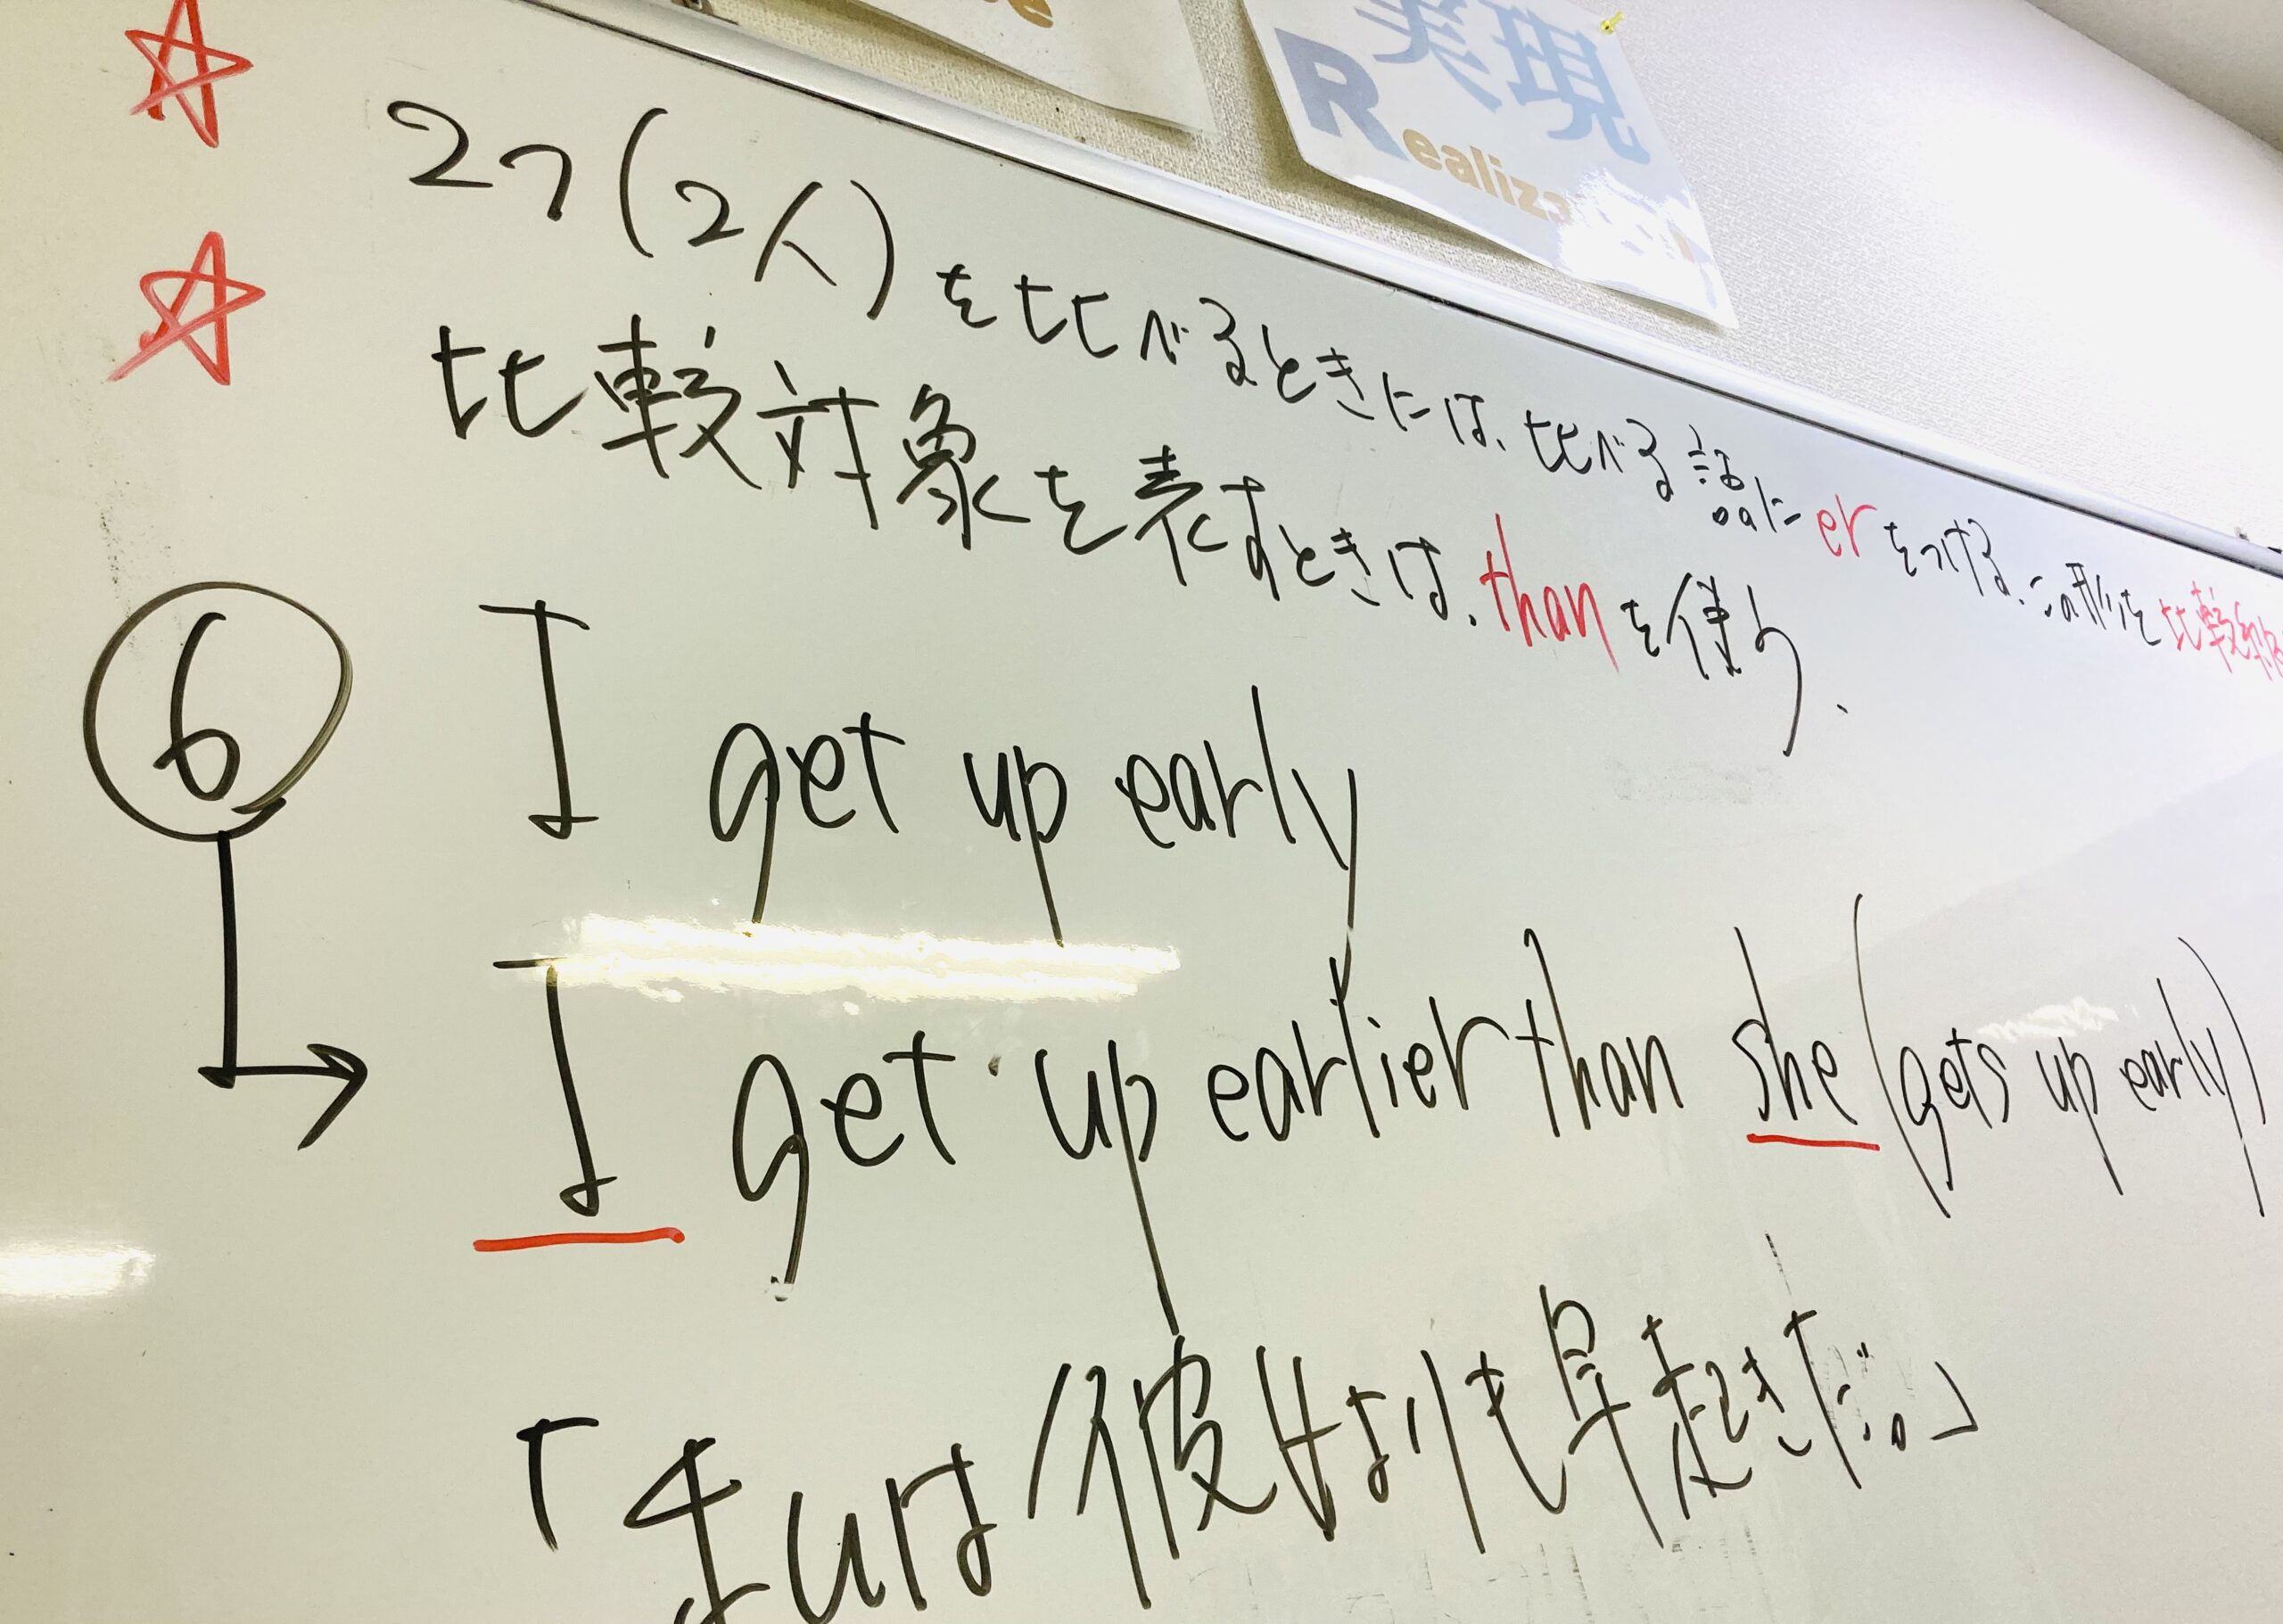 実現
Realiza
2つ(2人)を比べるときには、比べる語にerをつける、この形を比較級
比較対象を表すときは、thanを使う、
6 I get up early
I get up earlier than she (gets up early)
「私は彼女よりも早起きだ。」